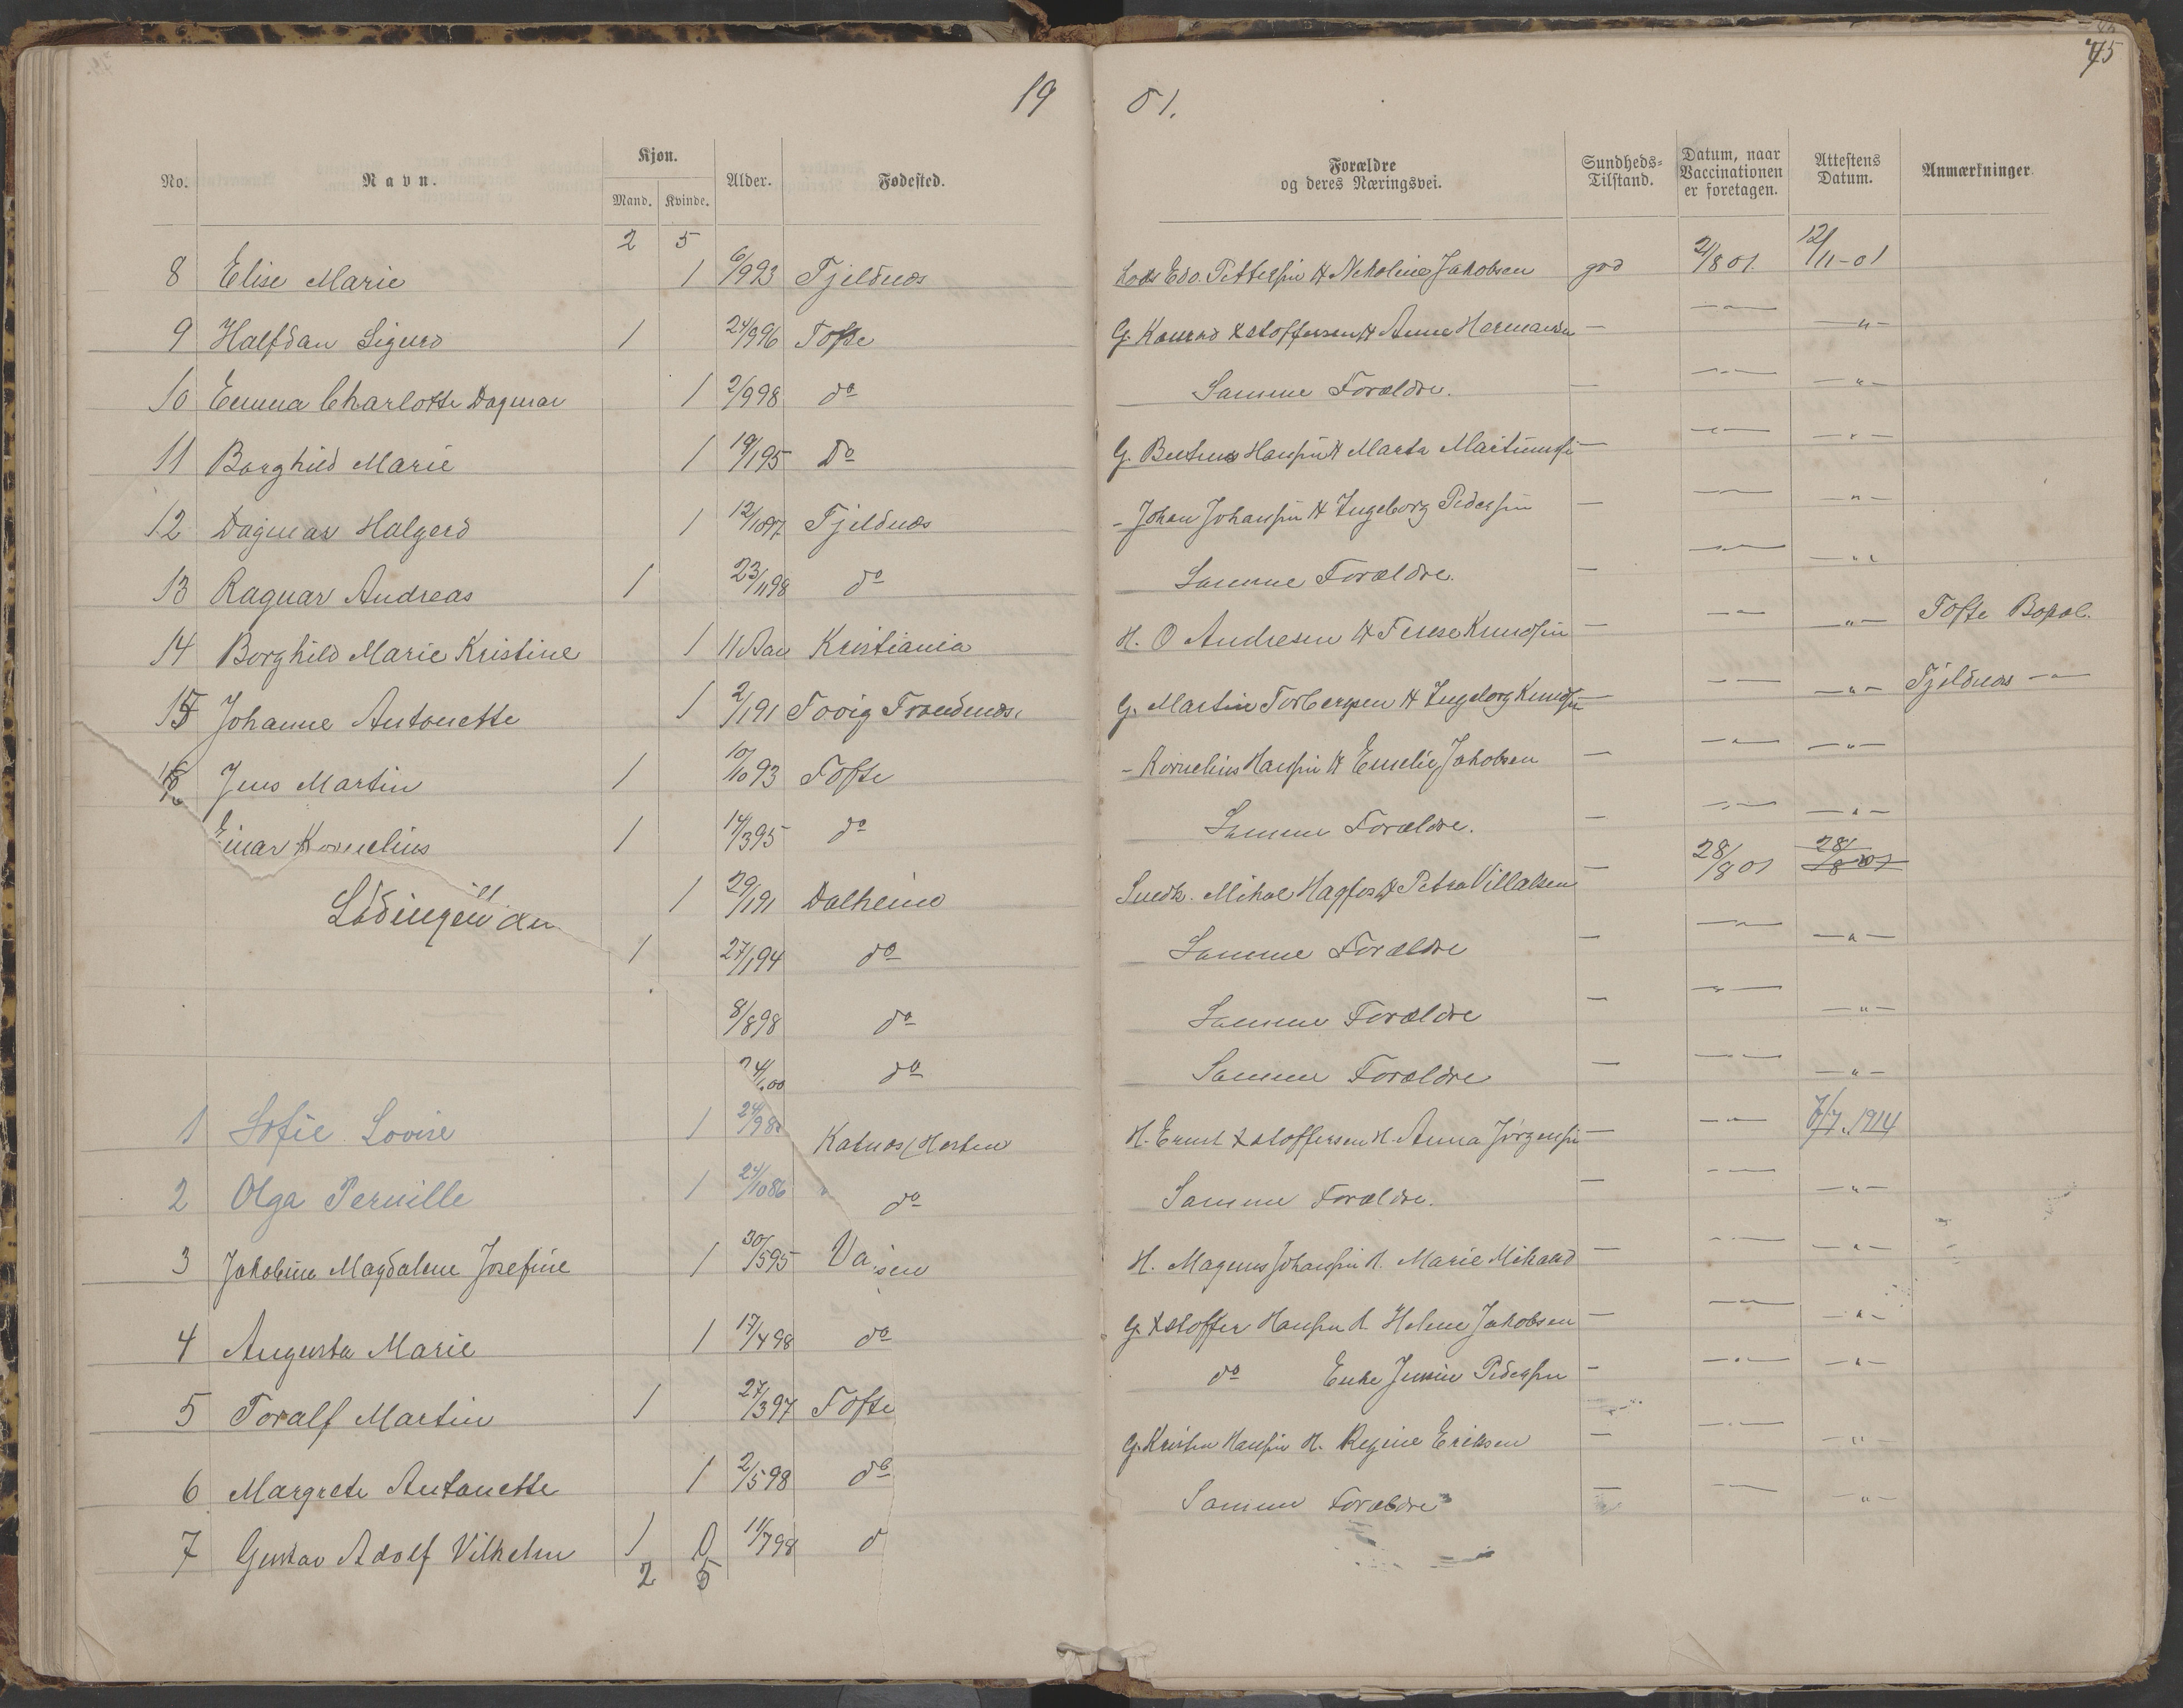 75
19 01.
No. Navn. Kjøn. Mand. Kvinde. Alder. Fødested. Forældre og deres Næringsvei. Sundheds-Tilstand. Datum, naar Vaccinationen er foretagen. Attestens Datum. Anmærkninger.
2 5
8 Elise Marie 1 6/9 93 Fjeldnæs Lods Edv. Pettersen H Nekoline Jakobsen god 2/8 01. 12/11-01
9 Halfdan Sigurd 1 24/9 96 Tofte G. Konrad Xstoffersen H Anne — — " — — " —
10 Emma Charlotte Dagmar 1 2/9 98 do Samme Forældre. — — " — — " —
11 Borghild Marie 1 19/1 95 Do G. Hansen H Marta — — " — — " —
12 Dagmar Halgerd 1 12/10 97 Fjeldnæs - Johan Johansen H Ingeborg Pedersen — — " — — " —
13 Ragnar Andreas 1 23/11 98 do Samme Forældre. — — " — — " —
14 Borghild Marie Kristine 1 11 Aar Kristiania H. O Andresen H Knudsen — — " — — " — Tofte Bopæl.
15 Johanne Antonette 1 2/1 91 G. Martin Torbergsen H Ingeborg Knudsen — — " — — " — Fjeldnæs — " —
16 Jens Martin 1 10/10 93 Tofte - Kornelius Hansen H Emelie Jakobsen — — " — — " —
Einar Kornelius 1 14/3 95 do Samme Forældre. — — " — — " —
1 29/1 91 Dalheim Snedk. Mikal H Petra Villatsen — 28/8 01 28/8 01
Lødingen den
1 27/1 94 do Samme Forældre — — " — — " —
8/8 98 do Samme Forældre — — " — — " —
do Samme Forældre — — " — — " —
1 Sofie Lovise 1 24/9 8 Katnæs/Horten H. Ernst Xstoffersen H. Anna Jørgensen — — " — 7/7. 1914
2 Olga Pernille 1 24/10 86 do Samme Forældre. — — " — — " —
3 Jakobine Magdalene Josefine 1 30/5 95 H. Magnus Johansen H. Marie — — " — — " —
4 Augusta Marie 1 17/4 98 do G. Xstoffer Hansen H. Helene Jakobsen — — " — — " —
5 Toralf Martin 1 27/3 97 Tofte do Enke Pedersen — — " — — " —
6 Margrete Antonette 1 2/5 98 do G. Kristen Hansen H. Regine Eriksen — — " — — " —
7 Gustav Adolf Vilhelm 1 0 11/7 98 d Samme Forældre — — " — — " —
2 5